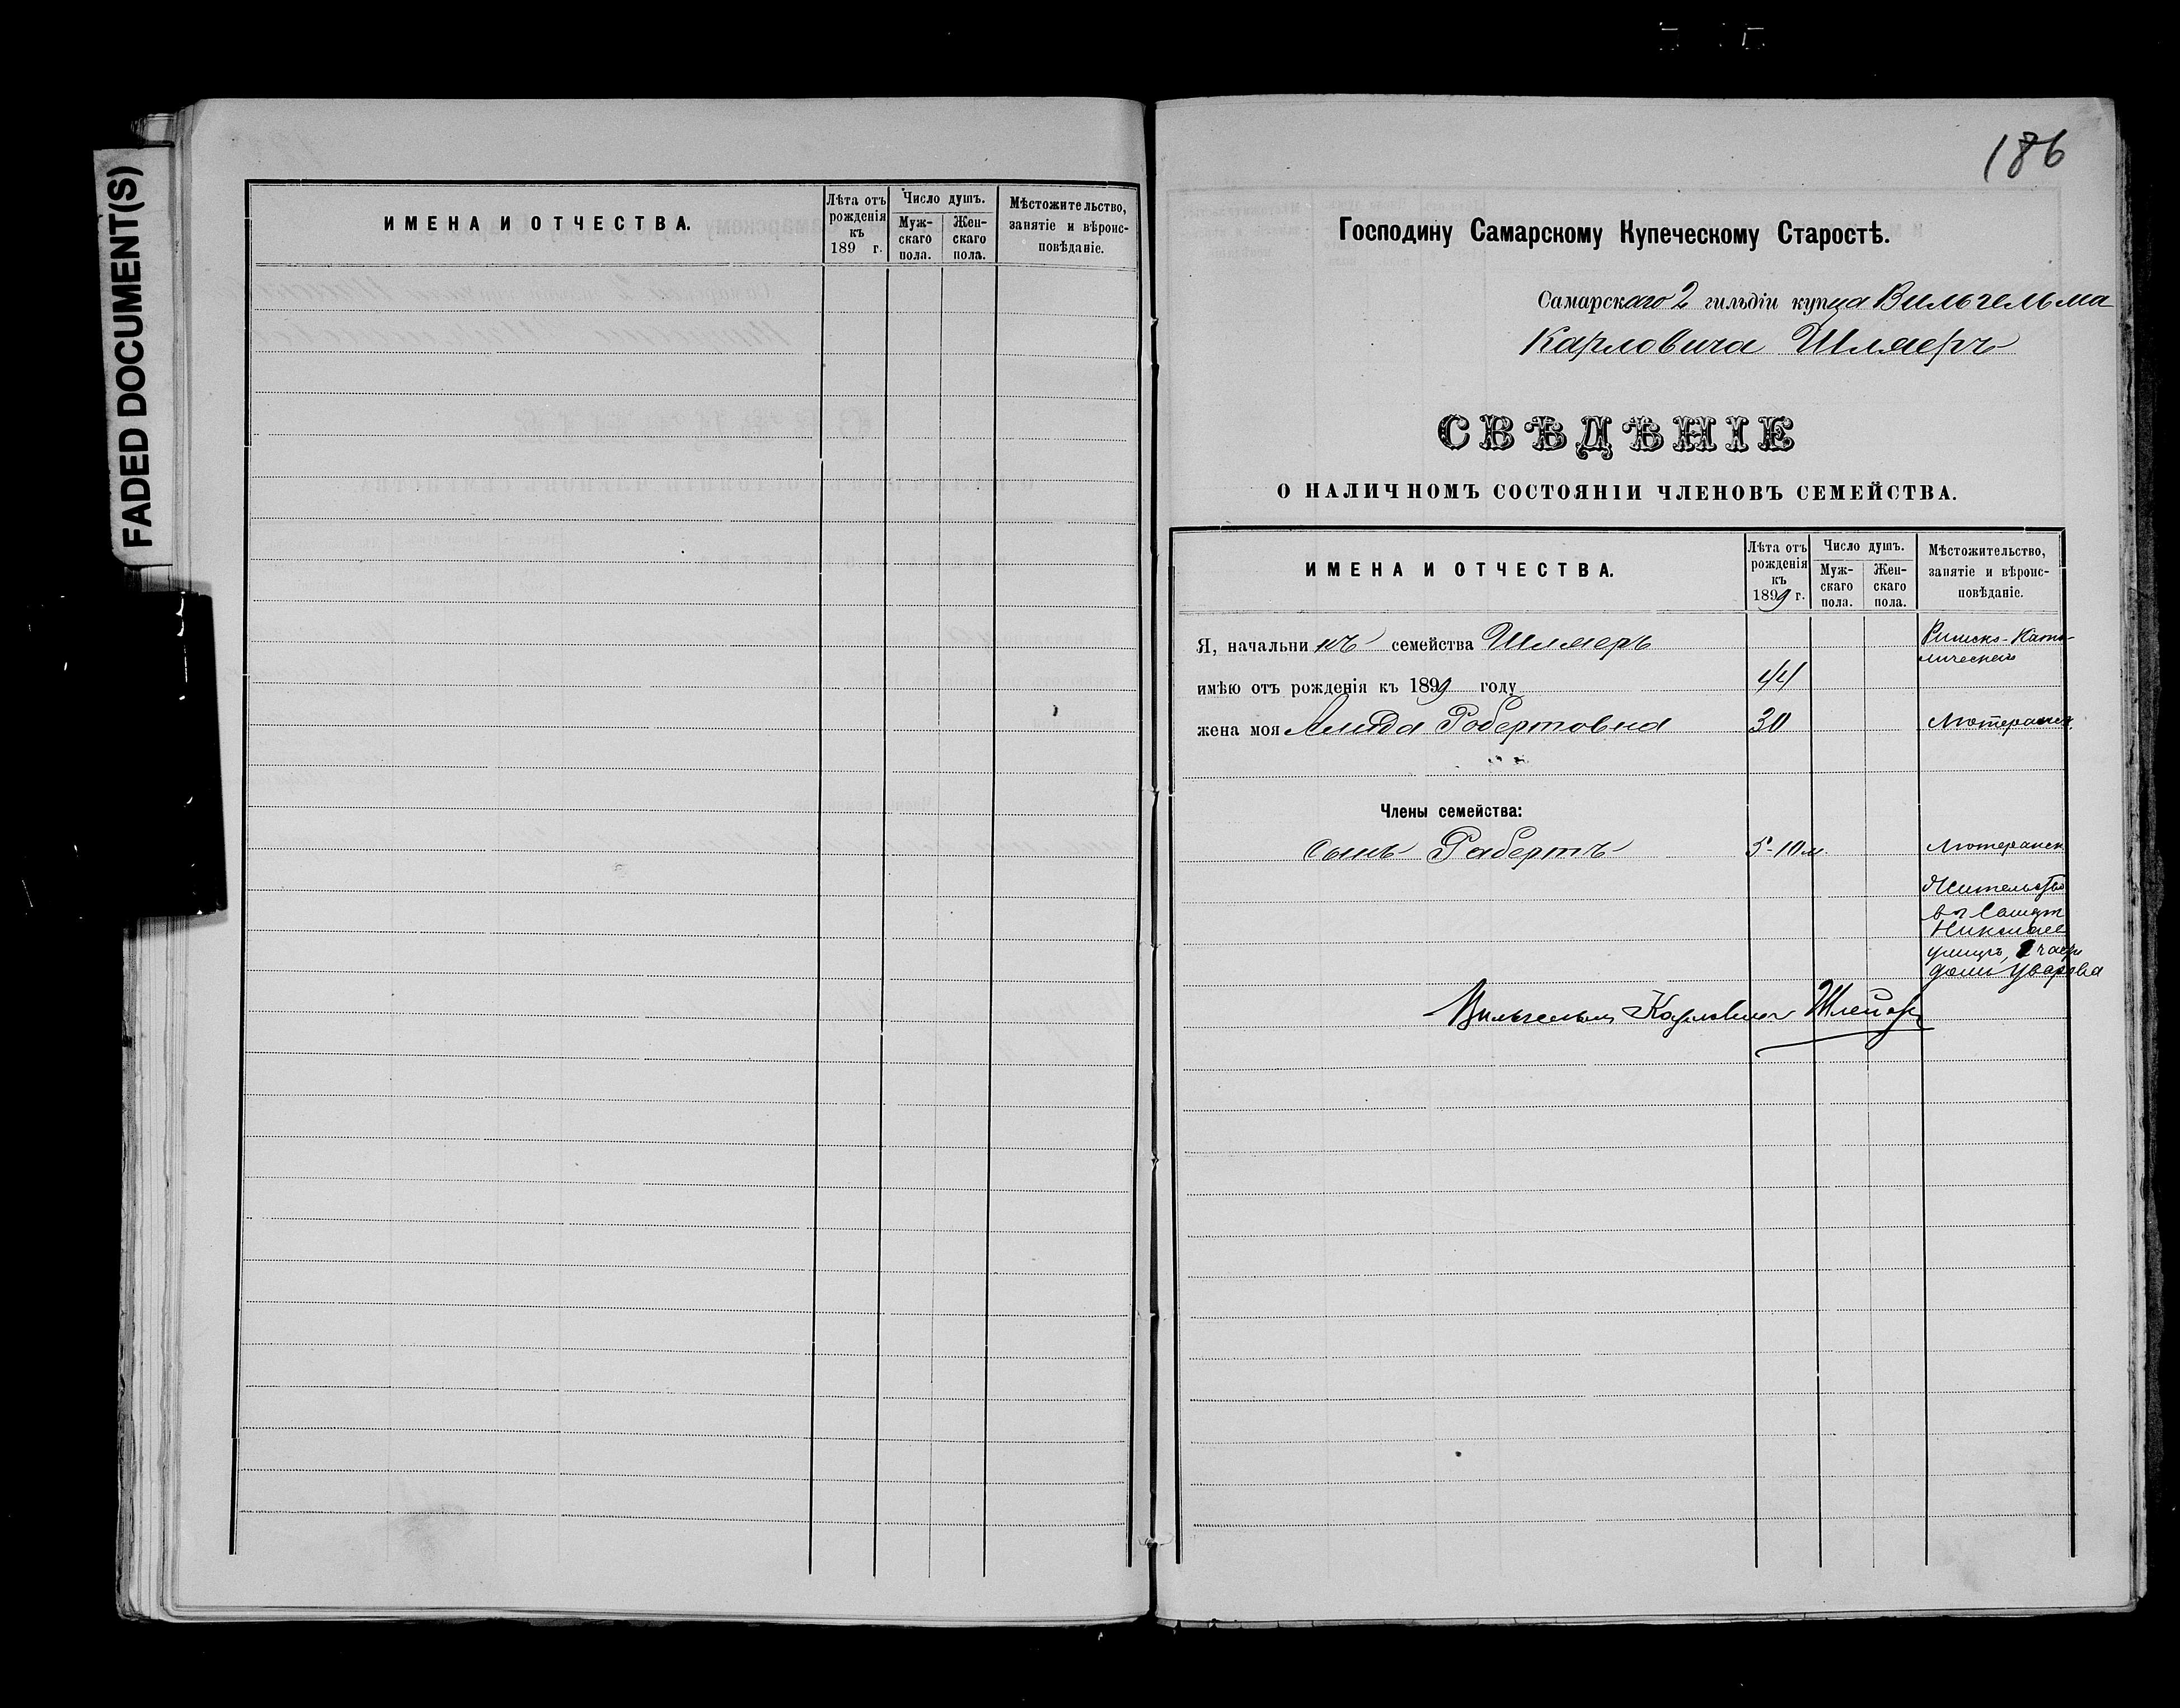 FADED DOCUMENT(S)
ИМЕНА И ОТЧЕСТВА.
Лѣта отъ рожденія къ 189 г.
Число душъ.
Муж-скаго пола.
Жен-скаго пола.
Мѣстожительство, занятіе и вѣроис-повѣданіе.
186
Господину Самарскому Купеческому Старостѣ.
Самарскаго 2 гильдіи купца Вильгельма
Карловича Шляеръ
СВѢДѢНІЕ
О НАЛИЧНОМЪ СОСТОЯНІИ ЧЛЕНОВЪ СЕМЕЙСТВА.
ИМЕНА И ОТЧЕСТВА.
Лѣта отъ рожденія къ 1899 г.
Число душъ.
Муж-скаго пола.
Жен-скаго пола.
Мѣстожительство, занятіе и вѣроис-повѣданіе.
Я, начальникъ семейства Римско-Като-
имѣю отъ рожденія къ 1899 году 44
жена моя Алида Робертовна 30 Лютеранск.
Члены семейства:
сынъ Робертъ 5-10 м. Лютеранск
Жительство
въ
Николаев
улицѣ, части
домъ Уварова
Вильгельмъ Карловичъ